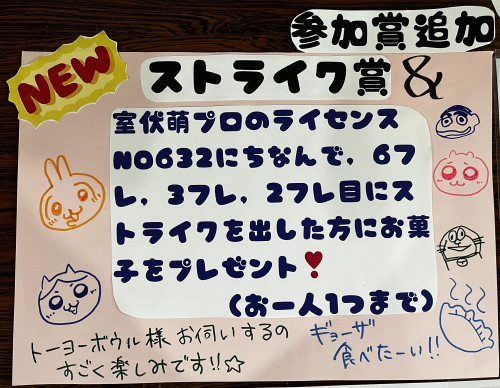 参加賞追加
NEW
ストライク賞 &
室伏萌プロのライセンス
NO632にちなんで，6フ
レ，3フレ，2フレ目にス
トライクを出した方にお菓
子をプレゼント❣
(お一人1つまで)
トーヨーボウル様 お伺いするの
すごく楽しみです!!☆
ギョーザ
食べたーい!!